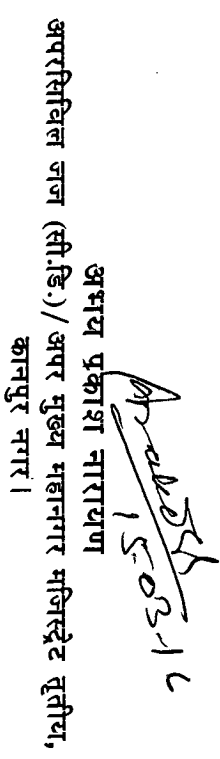 15-03-16
अभय प्रकाश नारायण
अपरसिविल जज (सी.डि.)/ अपर मुख्य महानगर मजिस्ट्रेट तृतीय,
कानपुर नगर।